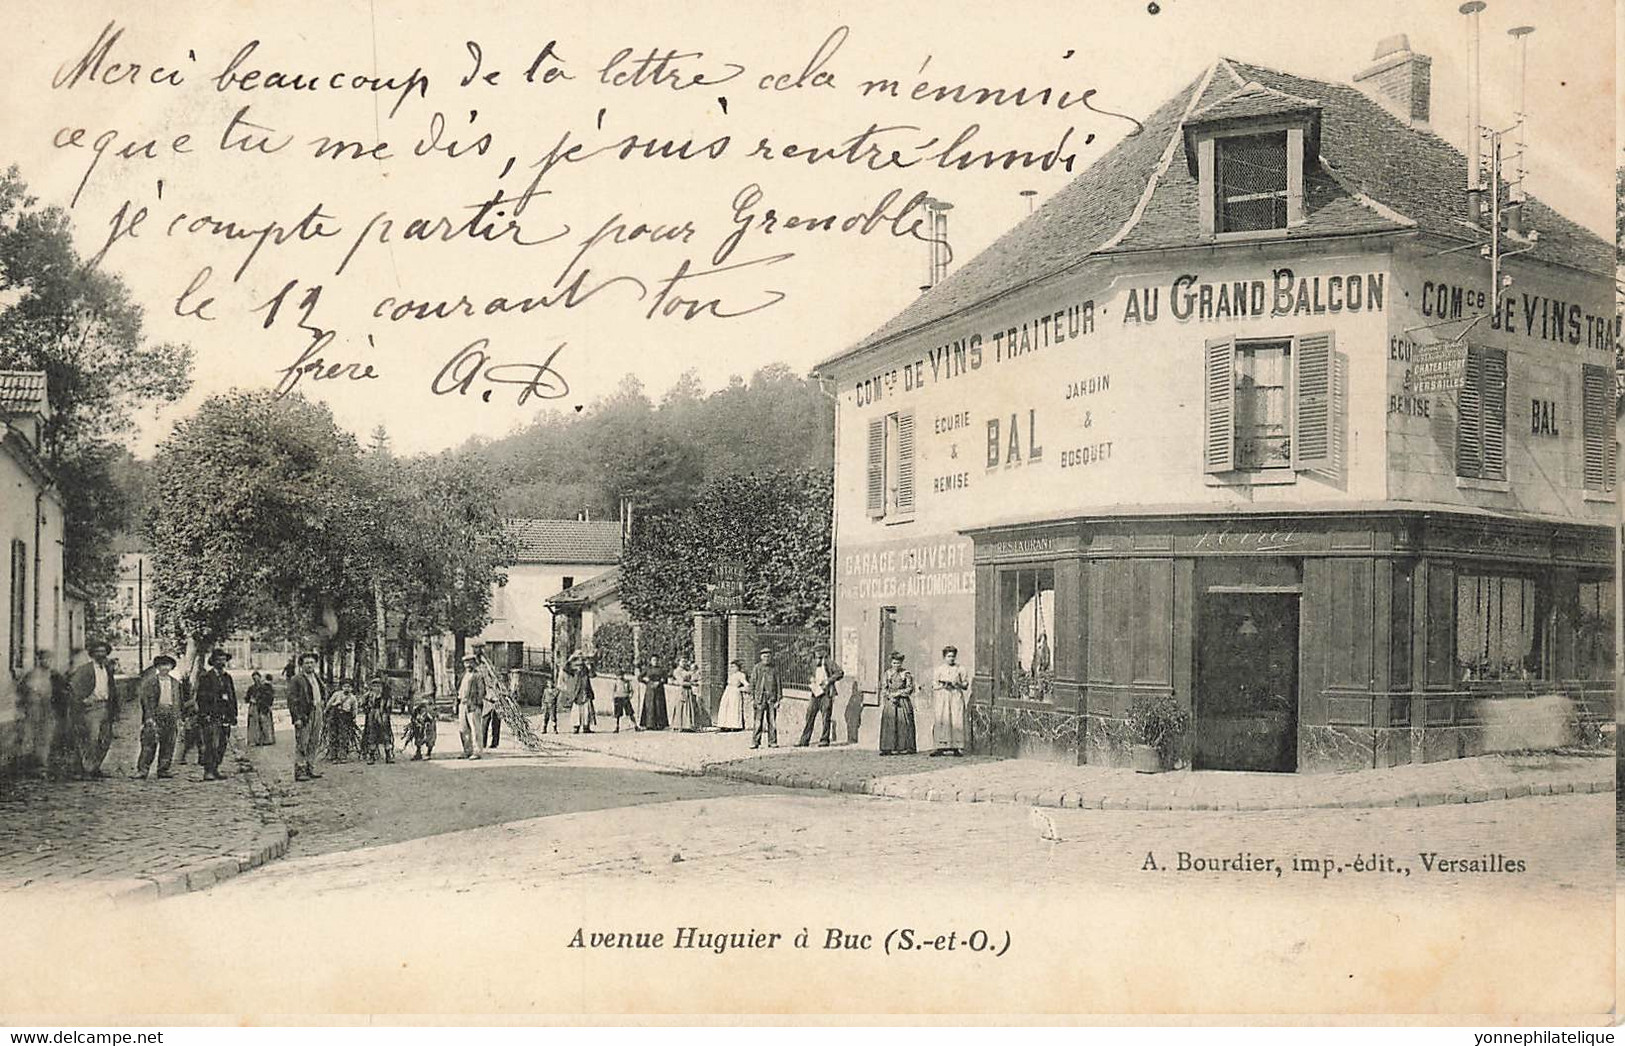 Merci beaucoup de ta lettre cela m'ennuie
ce que tu me dis, je suis rentré lundi
je compte partir pour Grenoble
le 12 courant ton
frère A.D.
COM.ce DE VINS TRAITEUR · AU GRAND BALCON · COM.ce DE VINS TRA
ÉCURIE
&
REMISE
BAL
JARDIN
&
BOSQUET
ÉCU
&
REMISE
CHATEAUFORT
VERSAILLES
BAL
GARAGE COUVERT
POUR CYCLES et AUTOMOBILES
RESTAURANT
ENTRÉE
A. Bourdier, imp.-édit., Versailles
Avenue Huguier à Buc (S.-et-O.)
www.delcampe.net
yonnephilatelique